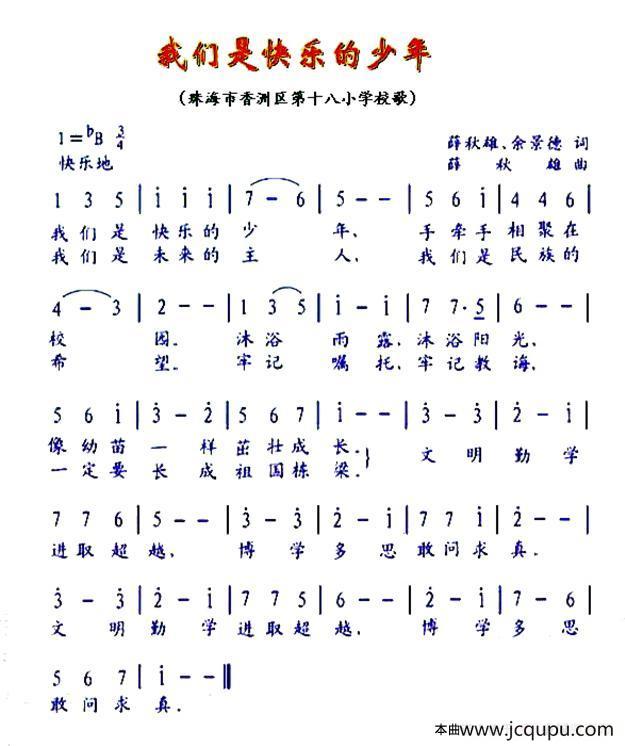 我们是快乐的少年
(珠海市香洲区第十八小学校歌)
1=ᵇB 3/4
薛秋雄、余景德 词
快乐地
薛 秋 雄 曲
1 3 5 | i i i | 7 - 6 | 5 - - | 5 6 i | 4 4 6 |
我们是 快乐的 少 年、 手牵手 相聚在
我们是 未来的 主 人、 我们是 民族的
4 - 3 | 2 - - | 1 3 5 | i - i | 7 7· 5 | 6 - - |
校 园。 沐浴 雨露、沐浴阳光、
希 望。 牢记 嘱托、牢记教诲、
5 6 i | 3 - 2 | 5 6 7 | i - - | 3 - 3 | 2 - i |
像幼苗 一 样 茁壮成长。 文 明 勤 学
一定要 长 成 祖国栋梁。
7 7 6 | 5 - - | 3 - 3 | 2 - i | 7 7 i | 2 - - |
进取超越、 博 学 多 思 敢问求真。
3 - 3 | 2 - i | 7 7 5 | 6 - - | 2 - i | 7 - 6 |
文 明 勤 学 进取超越、 博 学 多 思
5 6 7 | i - - ‖
敢问求真。
本曲www.jcqupu.com